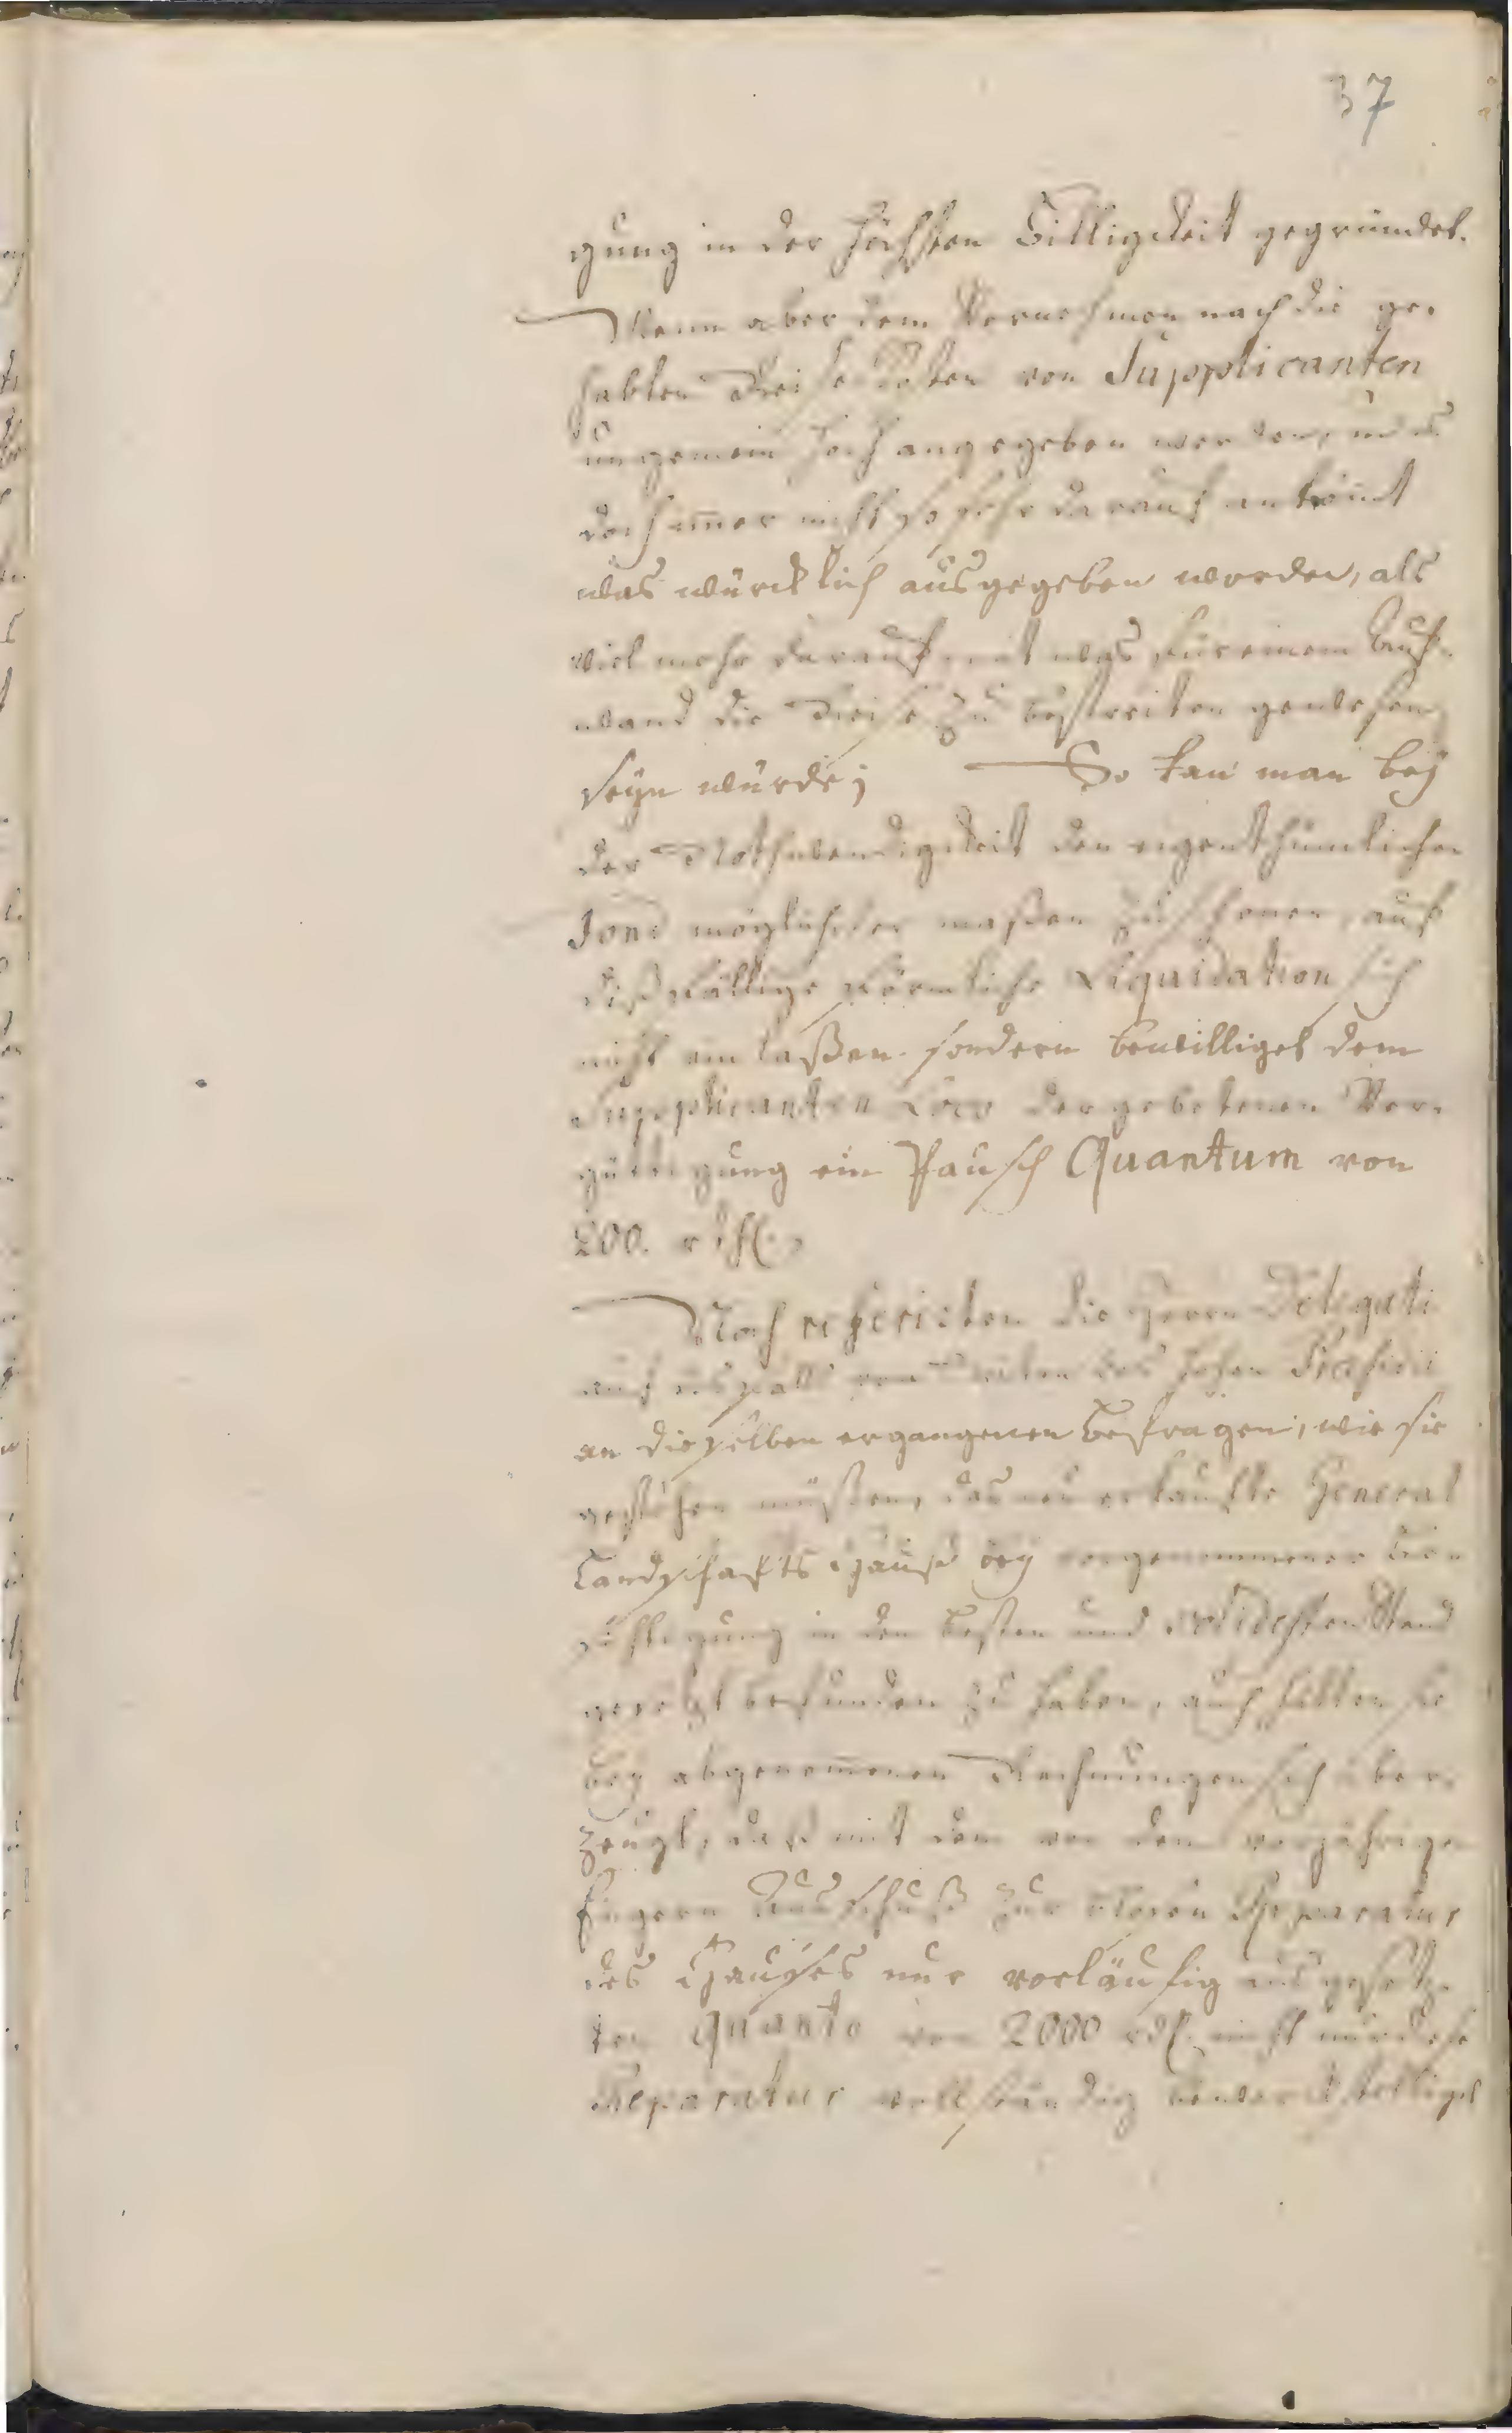 37
gung in der höchsten Billigkeit gegründet.
Wenn aber dem Vernehmen nach die ge-
habten Reise Kosten von Supplicanten
ungemein hoch angegeben werden, und es
doch im̄er nicht so sehr darauf ankom̄t
was würcklich ausgegeben worden, als
viel mehr darauf mit was für einem Auf-
wand die Reise zu bestreiten gewesen
seyn würde; So kan man bey
der Nothwendigkeit den eigenthümlichen
Fond möglichster maßen zu schonen, auf
dißfällige förmliche Liquidation sich
nicht ein laßen. sondern bewilliget dem
Supplicanten Loco der gebetenen Ver-
gütigung ein Pausch Quantum von
200. rthl.
Noch referirten die Herren Delegati
auf von Seiten des hohen Præsidii
an dieselben ergangenen Befragen, wie sie
gestehen müßten, das neu erkaufte General
Landschafts Hauß bey vorgenommener
in den besten und solidesten Stand
gesetzt befunden zu haben, auch hätten sie
bey abgenom̄enen Rechnungen sich über-
zeugt, daß mit dem von dem vorjährigen
Engern Ausschuß zur Reparatur
des Haußes nur vorläufig ausgesetz-
ten Quanto von 2000 rthl. nicht nur diese
Reparatur vollständig bewerckstelliget